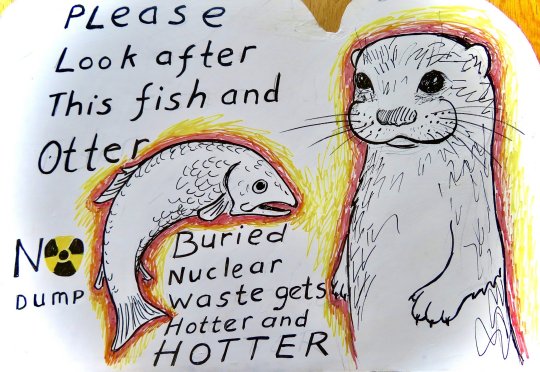 PLease
Look after
This fish and
Otter
NO
DUMP
Buried
Nuclear
Waste gets
Hotter and
HOTTER